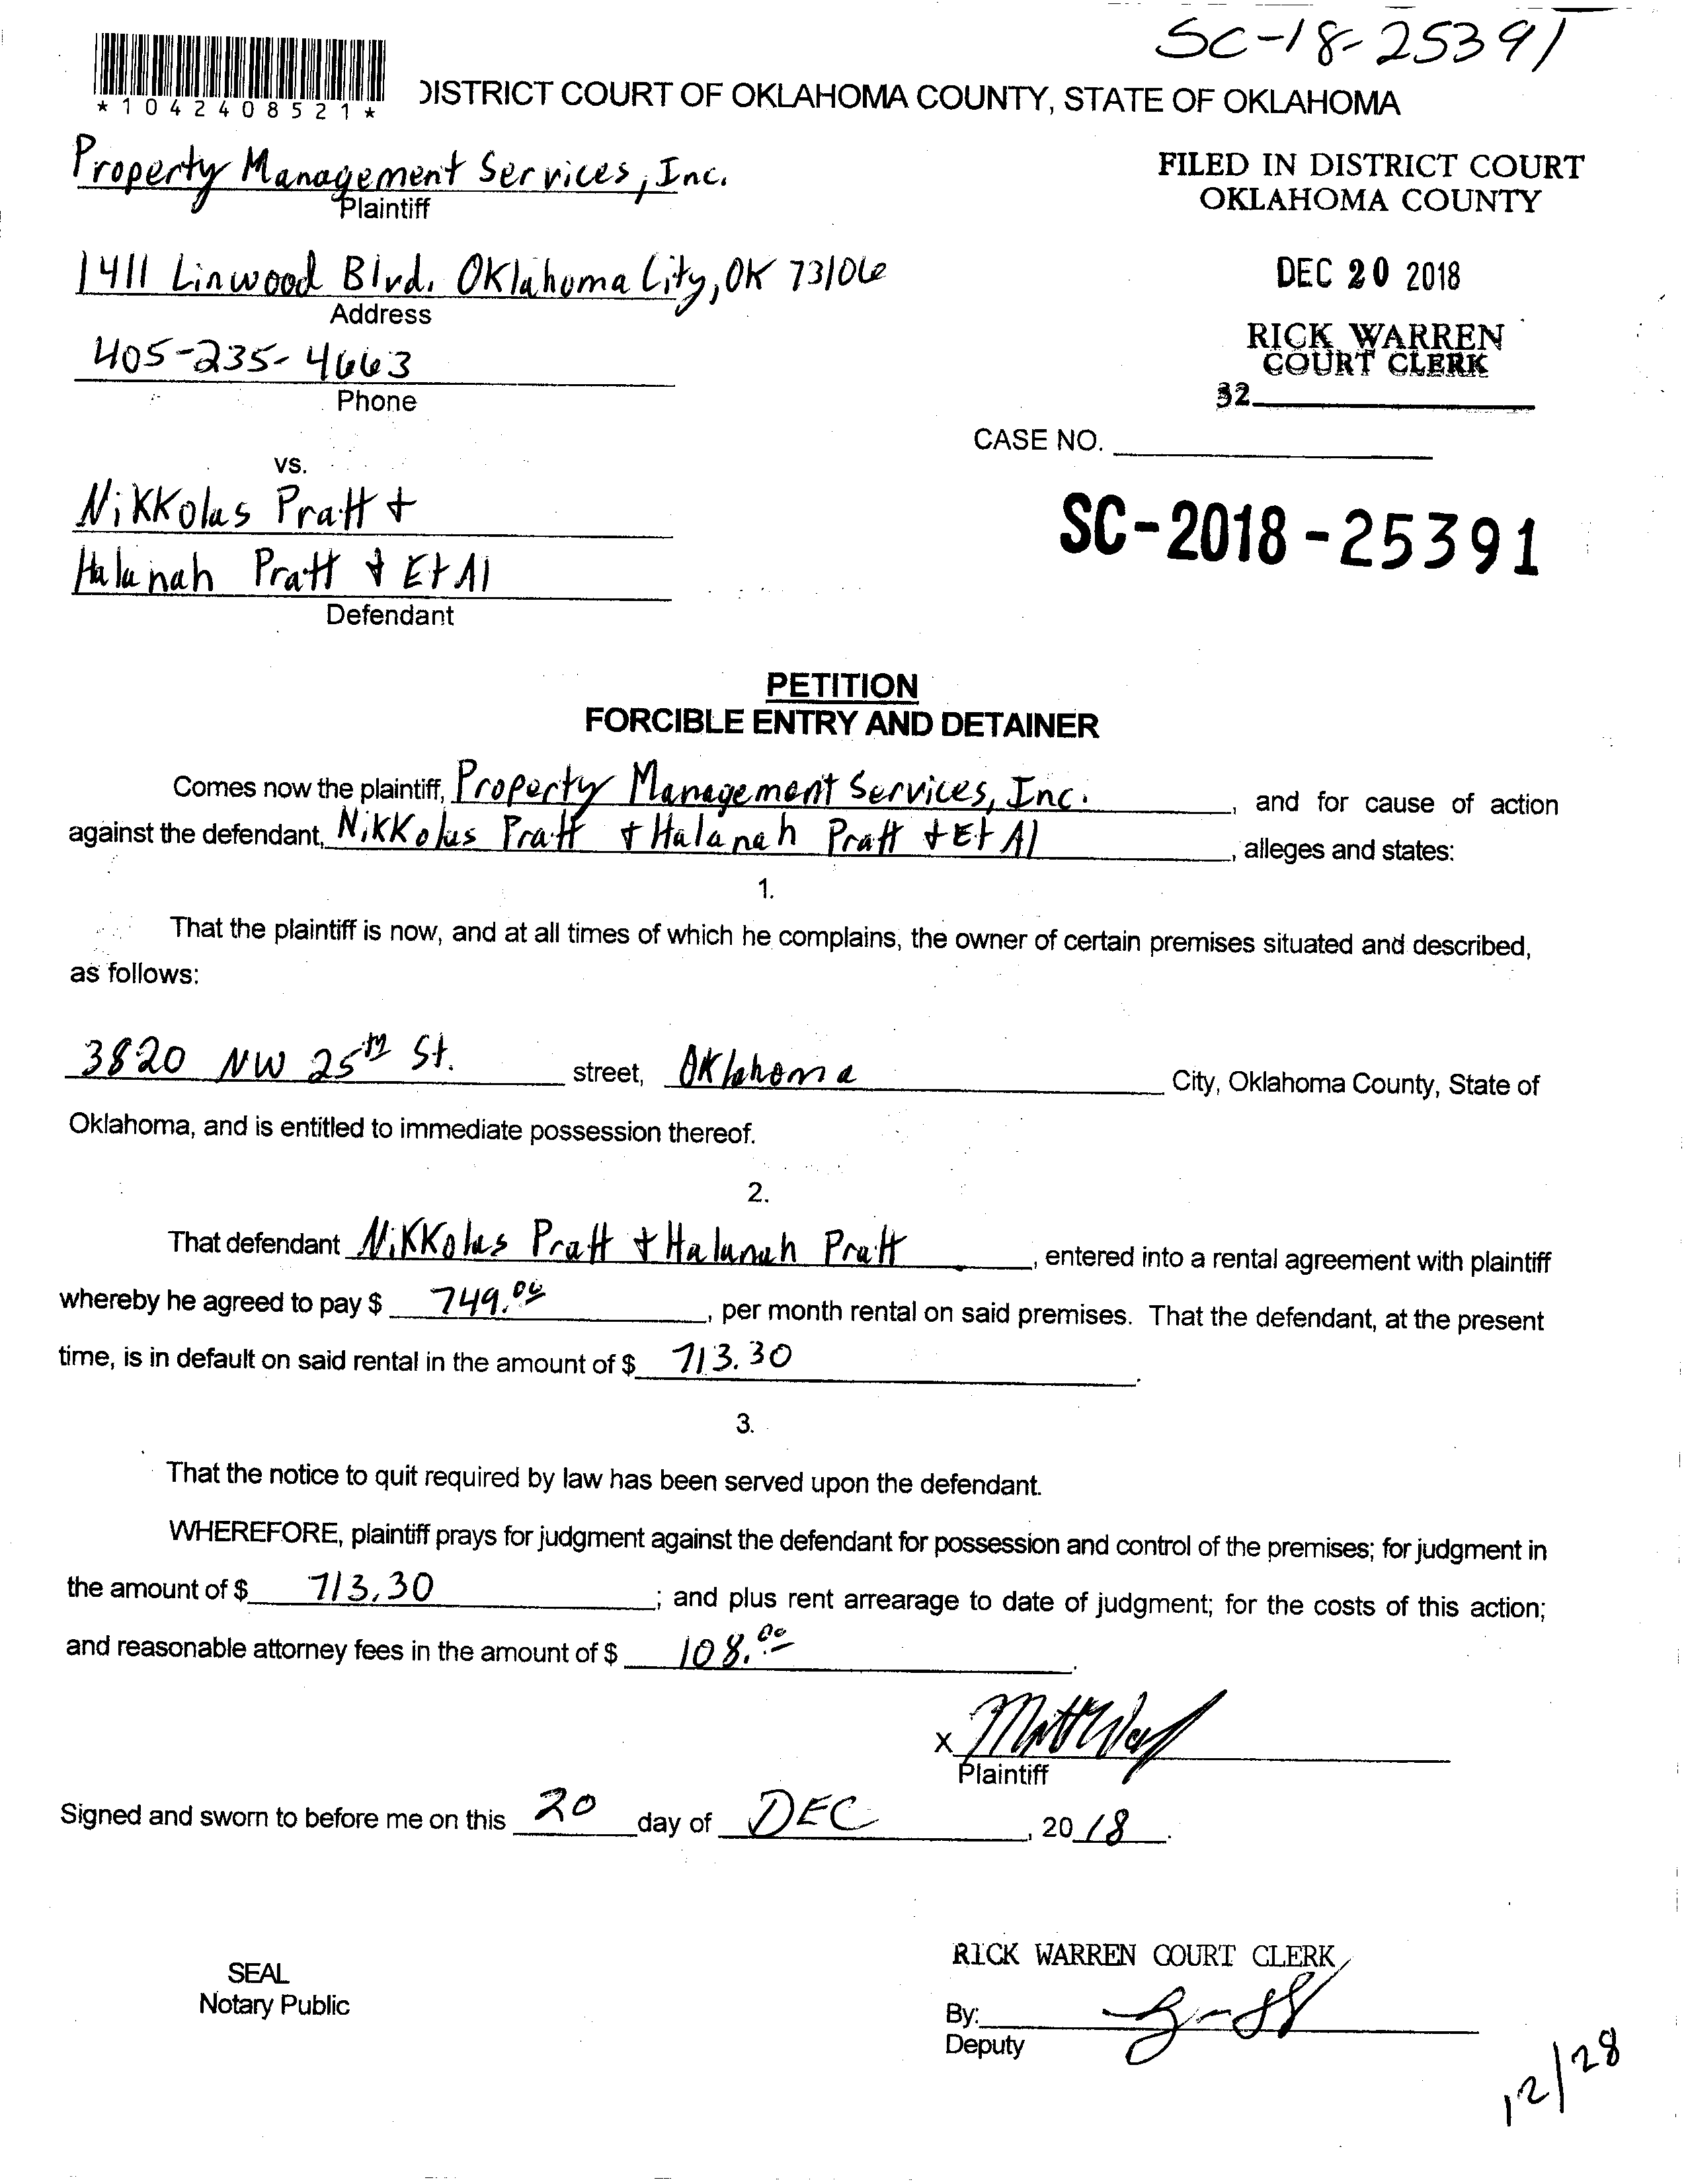 SC-18-25391
*1042408521*
DISTRICT COURT OF OKLAHOMA COUNTY, STATE OF OKLAHOMA
Property Management Services, Inc.
Plaintiff
FILED IN DISTRICT COURT
OKLAHOMA COUNTY
1411 Linwood Blvd. Oklahoma City, OK 73106
Address
DEC 20 2018
405-235-4663
Phone
RICK WARREN
COURT CLERK
32
CASE NO.
vs.
Nikkolas Pratt +
Halanah Pratt + Et Al
Defendant
SC-2018-25391
PETITION
FORCIBLE ENTRY AND DETAINER
Comes now the plaintiff, Property Management Services, Inc., and for cause of action
against the defendant, Nikkolas Pratt + Halanah Pratt + Et Al, alleges and states:
1.
That the plaintiff is now, and at all times of which he complains, the owner of certain premises situated and described,
as follows:
3820 NW 25th St. street, Oklahoma City, Oklahoma County, State of
Oklahoma, and is entitled to immediate possession thereof.
2.
That defendant Nikkolas Pratt + Halanah Pratt, entered into a rental agreement with plaintiff
whereby he agreed to pay $ 749.00, per month rental on said premises. That the defendant, at the present
time, is in default on said rental in the amount of $ 713.30.
3.
That the notice to quit required by law has been served upon the defendant.
WHEREFORE, plaintiff prays for judgment against the defendant for possession and control of the premises; for judgment in
the amount of $ 713.30; and plus rent arrearage to date of judgment; for the costs of this action;
and reasonable attorney fees in the amount of $ 108.00.
X
Plaintiff
Signed and sworn to before me on this 20 day of DEC, 2018.
RICK WARREN COURT CLERK
SEAL
Notary Public
By:
Deputy
12/28